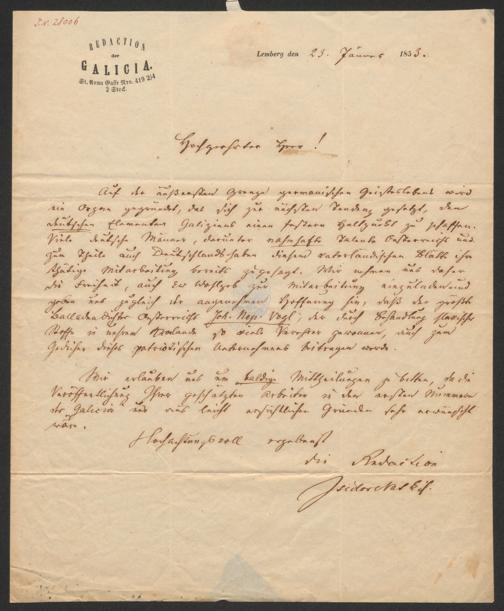 I.N. 28006
REDACTION
der
GALICIA.
St. Anna Gasse Nro. 419 2/4
2 Stock.
Lemberg den 23. Jänner 1853.
Hochgeehrter Herr!
Auf der äußersten Grenze germanischen Geisteslebens wird
ein Organ gegründet, das sich zur nächsten Tendenz gesetzt, dem
deutschen Elemente Galiziens einen festern Haltpunkt zu schaffen.
Viele deutsche Männer, darunter namhafte Talente Oesterreichs und
zum Theile auch Deutschlands haben diesem vaterländischen Blatte ihre
thätige Mitarbeitung bereits zugesagt. Wir nehmen uns daher
die Freiheit, auch Ew Wohlgb zur Mitarbeitung einzuladen und
geben uns zugleich der angenehmen Hoffnung hin, daß der größte
Balladendichter Oesterreichs Joh. Nep. Vogl, der durch Behandlung slavische
Stoffe in unserm Kronlande so viele Verehrer gewonnen, auch zum
Gedeihen dieses patriotischen Unternehmens beitragen werde.
Wir erlauben uns um baldige Mittheilungen zu bitten, da die
Veröffentlichung Ihrer geschätzten Arbeiten in den ersten Nummern
der Galicia uns aus leicht ersichtlichen Gründen sehr erwünscht
wäre.
Hochachtungsvoll ergebenst
die Redaction
Isidor